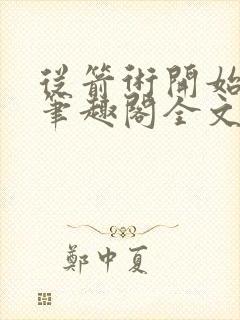 從箭術開始
筆趣閣全文
鄭中夏